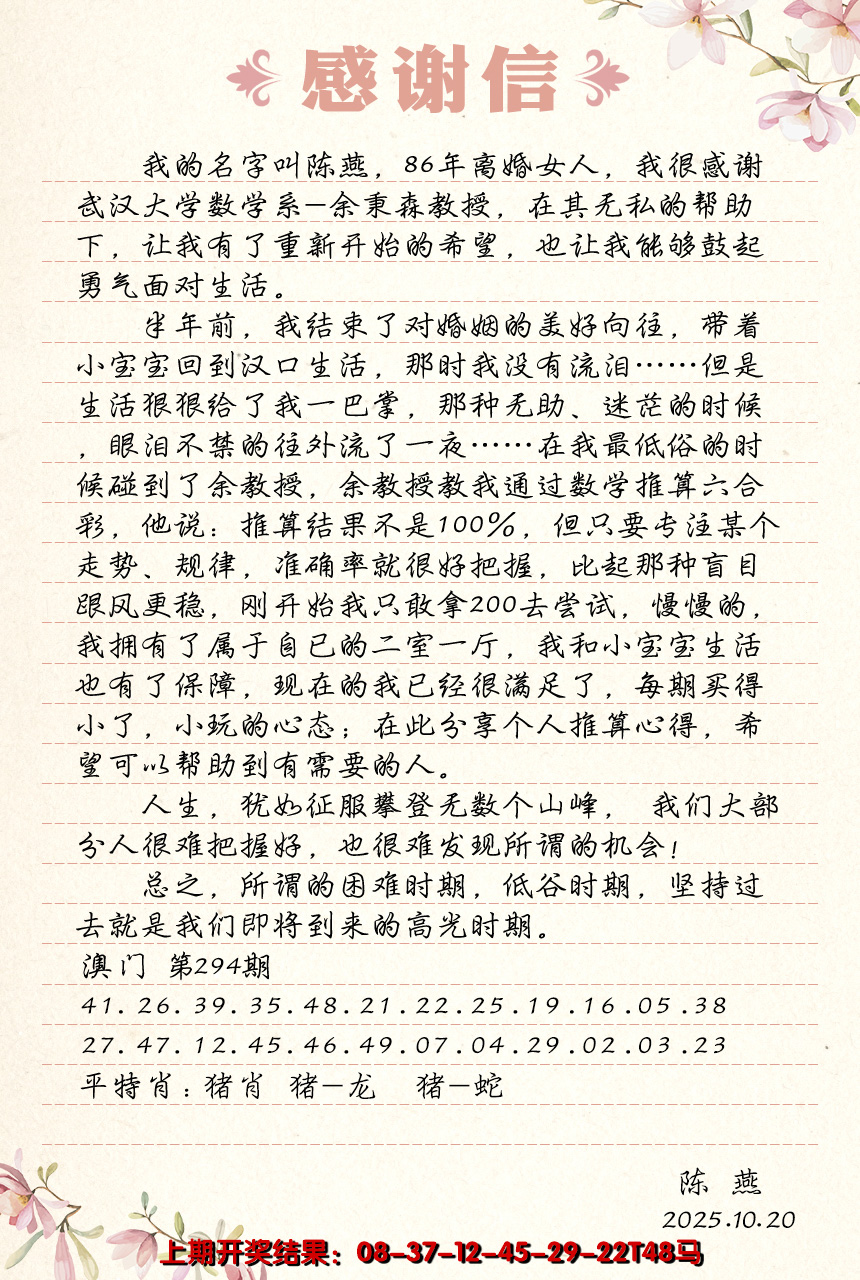 感谢信
我的名字叫陈燕，86年离婚女人，我很感谢
武汉大学数学系—余秉森教授，在其无私的帮助
下，让我有了重新开始的希望，也让我能够鼓起
勇气面对生活。
半年前，我结束了对婚姻的美好向往，带着
小宝宝回到汉口生活，那时我没有流泪……但是
生活狠狠给了我一巴掌，那种无助、迷茫的时候
，眼泪不禁的往外流了一夜……在我最低俗的时
候碰到了余教授，余教授教我通过数学推算六合
彩，他说：推算结果不是100%，但只要专注某个
走势、规律，准确率就很好把握，比起那种盲目
跟风更稳，刚开始我只敢拿200去尝试，慢慢的，
我拥有了属于自已的二室一厅，我和小宝宝生活
也有了保障，现在的我已经很满足了，每期买得
小了，小玩的心态；在此分享个人推算心得，希
望可以帮助到有需要的人。
人生，犹如征服攀登无数个山峰， 我们大部
分人很难把握好，也很难发现所谓的机会！
总之，所谓的困难时期，低谷时期，坚持过
去就是我们即将到来的高光时期。
澳门 第294期
41.26.39.35.48.21.22.25.19.16.05.38
27.47.12.45.46.49.07.04.29.02.03.23
平特肖：猪肖 猪—龙 猪—蛇
陈 燕
2025.10.20
上期开奖结果：08-37-12-45-29-22T48马